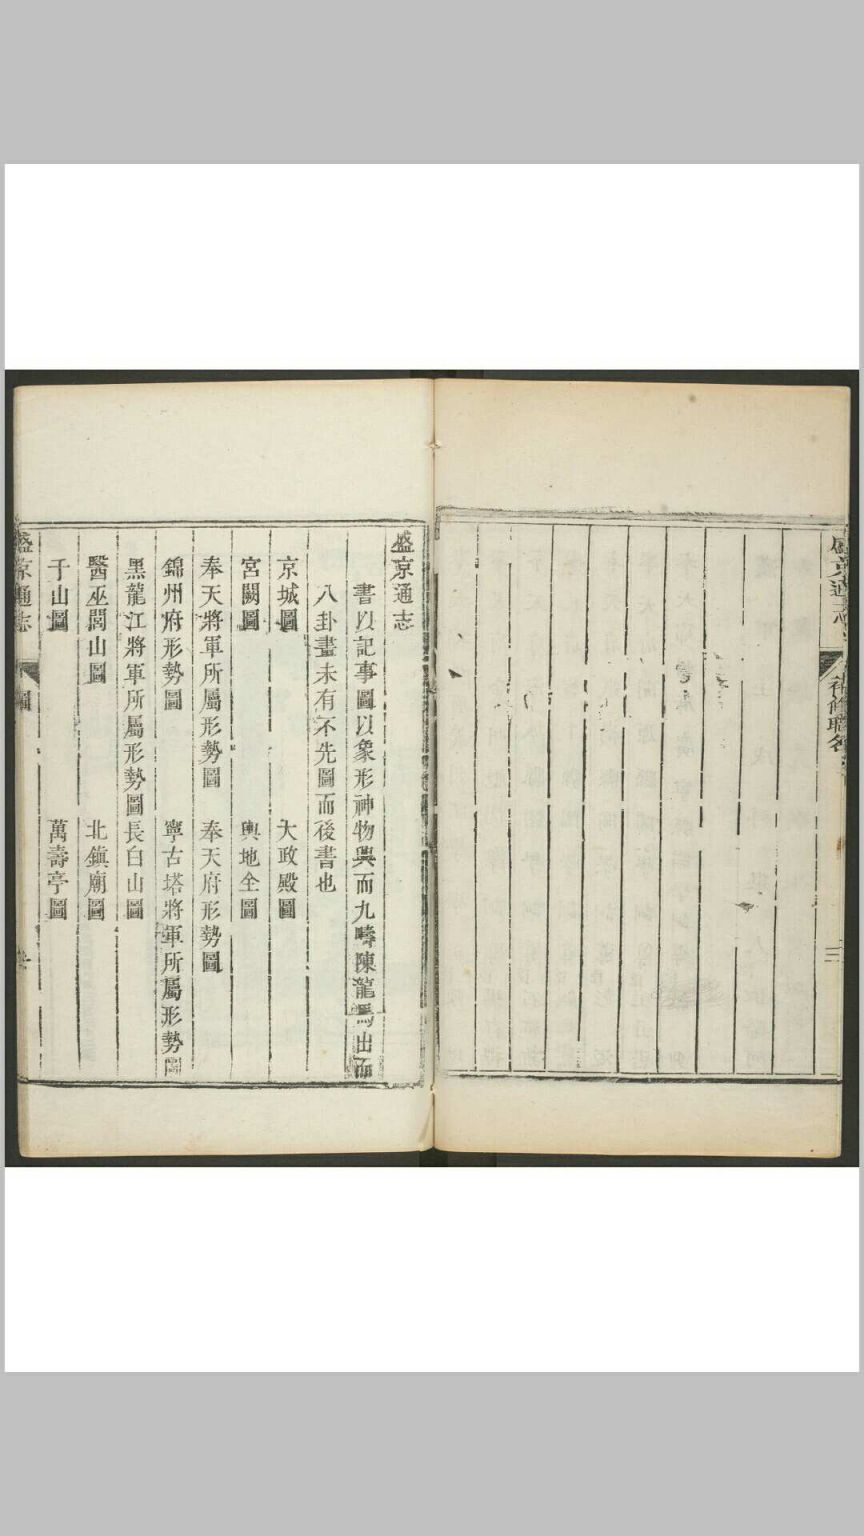 盛京通志
補修職名
三
盛京通志
書以記事圖以象形神物興而九疇陳龍馬出而
八卦畫未有不先圖而後書也
京城圖 大政殿圖
宮闕圖 輿地全圖
奉天將軍所屬形勢圖 奉天府形勢圖
錦州府形勢圖 寧古塔將軍所屬形勢圖
黑龍江將軍所屬形勢圖 長白山圖
醫巫閭山圖 北鎮廟圖
千山圖 萬壽亭圖
盛京通志
圖